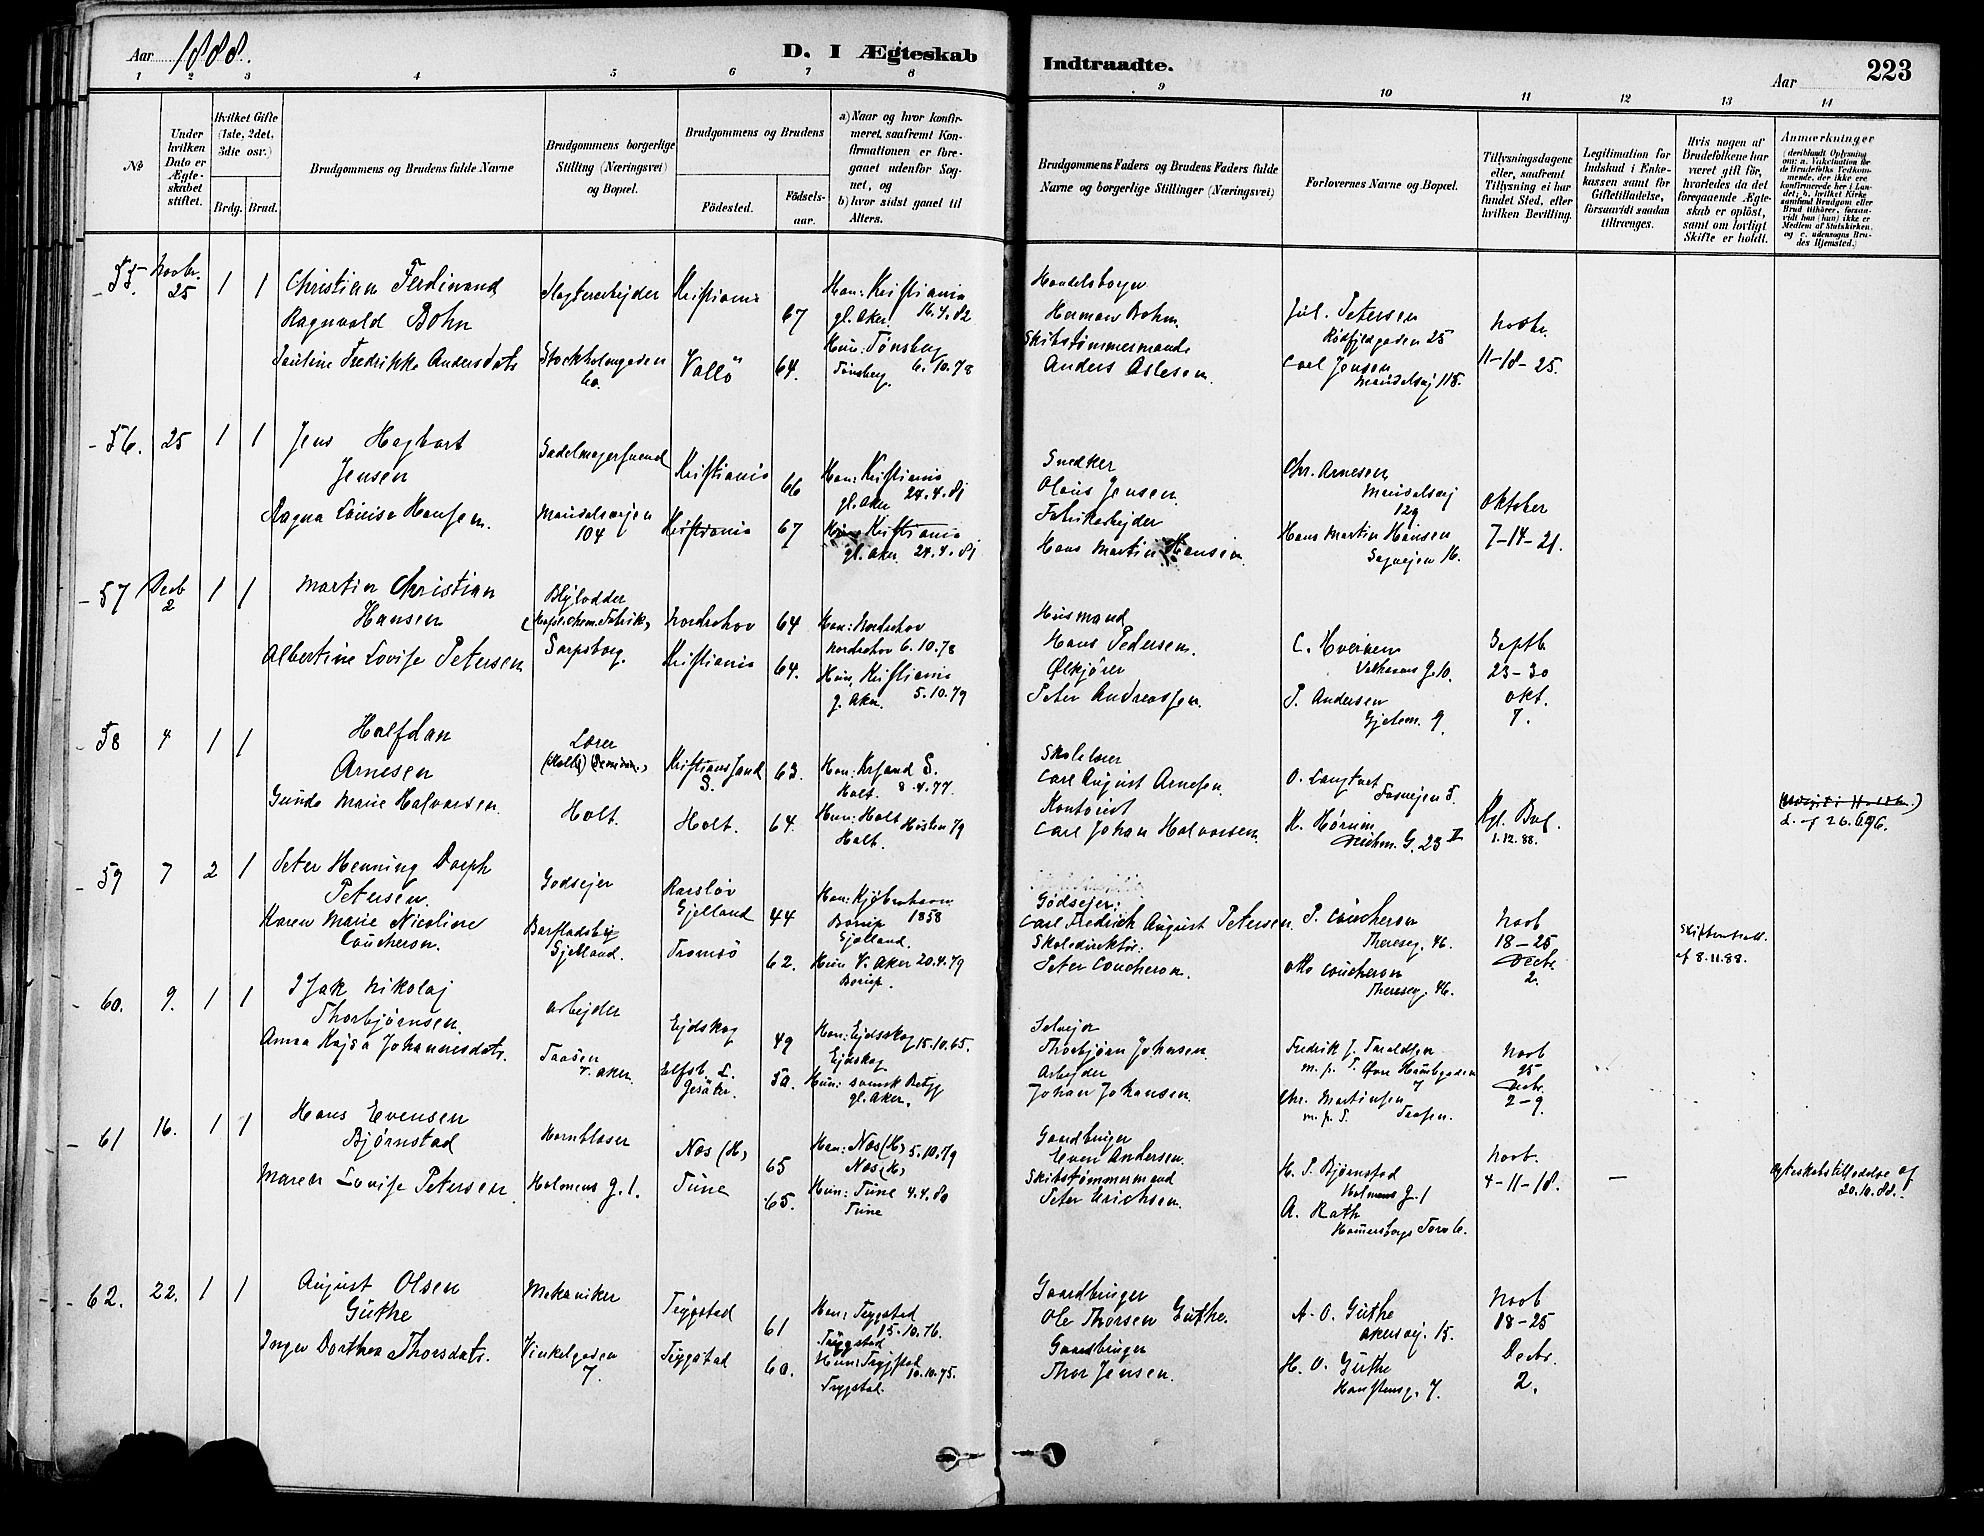 Aar 1888.
D. I Ægteskab
Indtraadte.
Aar
223
1 2 3 4 5 6 7 8 9 10 11 12 13 14
№
Under hvilken Dato er Ægteskabet stiftet.
Hvilket Gifte (1ste, 2det, 3die osv.)
Brdg. Brud.
Brudgommens og Brudens fulde Navne
Brudgommens borgerlige Stilling (Næringsvei) og Bopæl.
Brudgommens og Brudens
Födested.
Födselsaar.
a) Naar og hvor konfirmeret, saafremt Konfirmationen er foregaaet udenfor Sognet, og
b) hvor sidst gaaet til Alters.
Brudgommens Faders og Brudens Faders fulde Navne og borgerlige Stillinger (Næringsvei)
Forlovernes Navne og Bopæl.
Tillysningsdagene eller, saafremt Tillysning ei har fundet Sted, efter hvilken Bevilling.
Legitimation for Indskud i Enkekassen samt for Giftetilladelse, forsaavidt saadan tiltrænges.
Hvis nogen af Brudefolkene har været gift før, hvorledes da det foregaaende Ægteskab er oplöst, samt om lovligt Skifte er holdt.
Anmerkninger
(deriblandt Oplysning om: a. Vakcination for de Brudefolks Vedkommende, der ikke ere konfirmerede her i Landet; b. hvilket Kirkesamfund Brudgom eller Brud tilhörer, forsaavidt han (hun) ikke er Medlem af Statskirken, og c. udensogns Brudes Hjemsted.)
55. Novbr. 25 1 1 Christian Ferdinand
Ragnvald Bohn
Slagterarbejder Kristiania 67
Han: Kristiania
gl. Aker. 16.4.82
Handelsborger
Herman Bohm.
Jul. Petersen
Rødfjeldgaden 25
Novbr.
11-18-25.
Pauline Fredrikke Andersdatr
Stockholmgaden
60.
Vallö 64.
Hun: Tønsberg
Tønsberg. 6.10.78
Skibstømmermand
Anders Aslesen.
Carl Jensen
Maridalsvej 118.
56. 25 1 1 Jens Hagbart
Jensen
Sadelmagersvend
Kristiania 66
Han: Kristiania
gl. Aker 24.4.81
Snedker
Olaus Jensen
Chr. Arnesen
Maridalsvej
129
Oktober
7-14-21.
Ragna Louise Hansen.
Maridalsvejen
104
Kristiania 67
Hun: Kristiania
gl. Aker. 24.4.81
Fabrikarbejder
Hans Martin Hansen
Hans Martin Hansen
Sagvejen 16.
57 Decb 2 1 1 Martin Christian
Hansen
Blylodder
Nordrehov 64
Han: Nordrehov
Nordrehov 6.10.78
Husmand
Hans Pedersen.
Septb.
23-30
Okt.
7.
Albertine Lovise Petersen
Sarpsborg.
Kristiania 64.
Hun, Kristiania
g. Aker. 5.10.79
Ølkjører
Peter Andreassen.
P. Andersen
Gjetem. 9.
58 4 1 1 Halfdan
Arnesen
Lærer
Kristianssand
S. 63.
Han: Krsand S.
Holt. 8.4.77.
Skolelærer
Carl August Arnesen.
O. Langtvet
Kgl. Bevl.
1.12.88.
Gunda Marie Halvorsen.
Holt.
Holt. 64.
Hun: Holt Høsten 79
Holt.
Kontorist
Carl Johan Halvorsen
K. Hørum
Deichm. G. 23 II
59 7 2 1 Peter Henning Dorph
Petersen.
Godsejer
Sjelland 44
Han: Kjøbenhavn
Borup 1858
Sjelland.
Godsejer:
Carl Fredrich August Petersen
P. Coucheron
Thereseg. 46.
Novb
18-25
Decbr.
2.
af 8.11.88.
Karen Marie Nicoline
Coucheron.
Sjelland.
Tromsö 62.
Hun V. Aker 20.4.79
Borup.
Skoledirektør:
Peter Coucheron.
Otto Coucheron
Thereseg. 46.
60. 9. 1 1 Isak Nikolaj
Thorbjørnsen.
Arbejder
Ejdskog 49
Han: Ejdsskog 15.10.65.
Ejdskog
Selvejer
Thorbjørn Johnsen.
Fredrik J. Taraldsen
Novb
25
Decbr.
2-9.
Anna Kajsa Johannesdatr.
Taasen
v. Aker.
Elfsb. L. 50.
Hun: svensk Betyg
gl. Aker.
Arbejder
Johan Johansen.
Chr. Martinsen
Taasen.
61 16. 1 1 Hans Evensen
Bjørnstad
Hornblæser
Næs (H) 65
Han: Næs (H) 5.10.79
Næs (H)
Gaardbruger
Even Andersen.
H. P. Bjørnstad
Holmens G. 1
Novb.
4-11-18.
—
Ægteskabstilladelse af
20.10.88.
Maren Lovise Petersen
Holmens g. 1.
Tune 65.
Hun: Tune 4.4.80
Tune
Skibstømmermand
Peter Ulrichsen.
A. Rath
Hammersborgs Torv 6.
62. 22. 1 1 August Olsen
Guthe
Mekaniker
Trygstad 61
Han; Trygstad
15.10.76.
Trygstad
Gaardbruger
Ole Thorsen Guthe.
A. O. Guthe
Akersvej. 15.
Novb
18-25
Decbr.
2.
Inger Dorthea Thorsdatr.
Vinkelgaden
7.
Trygstad 60.
Hun: Trygstad
10.10.75.
Trygstad.
Gaardbruger
Thor Jensen.
H. O. Guthe
Hansteensg. 7.